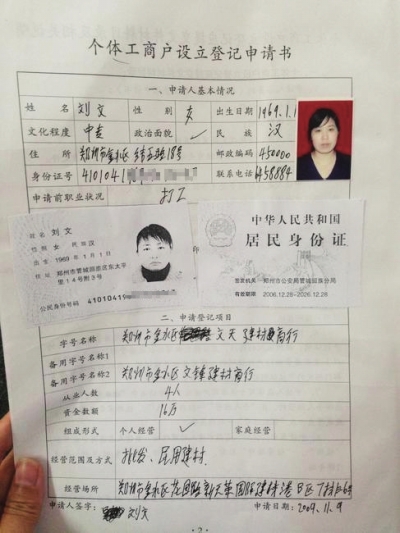 个体工商户设立登记申请书
一、申请人基本情况
姓名 刘文 性别 女 出生日期 1969.1.1
文化程度 中专 政治面貌 民族 汉
住所 郑州市金水区 18号 邮政编码 450000
身份证号 410104 联系电话
申请前职业状况 打工
姓名 刘文
性别 女 民族 汉
出生 1969年1月1日
住址 郑州市管城回族区东太平
第14号附3号
公民身份号码 4101041
中华人民共和国
居民身份证
签发机关 郑州市公安局管城回族分局
有效期限 2006.12.28-2026.12.28
二、申请登记项目
字号名称 郑州市金水区 文天建材商行
备用字号名称1
备用字号名称2 郑州市金水区文锋建材商行
从业人数 4人
资金数额 16万
组成形式 个人经营 ✓ 家庭经营
经营范围及方式 批发、民用建材
经营场所 郑州市金水区花园路新天荣国际建材港B区7
申请人签字: 刘文 申请日期: 2009.11.9